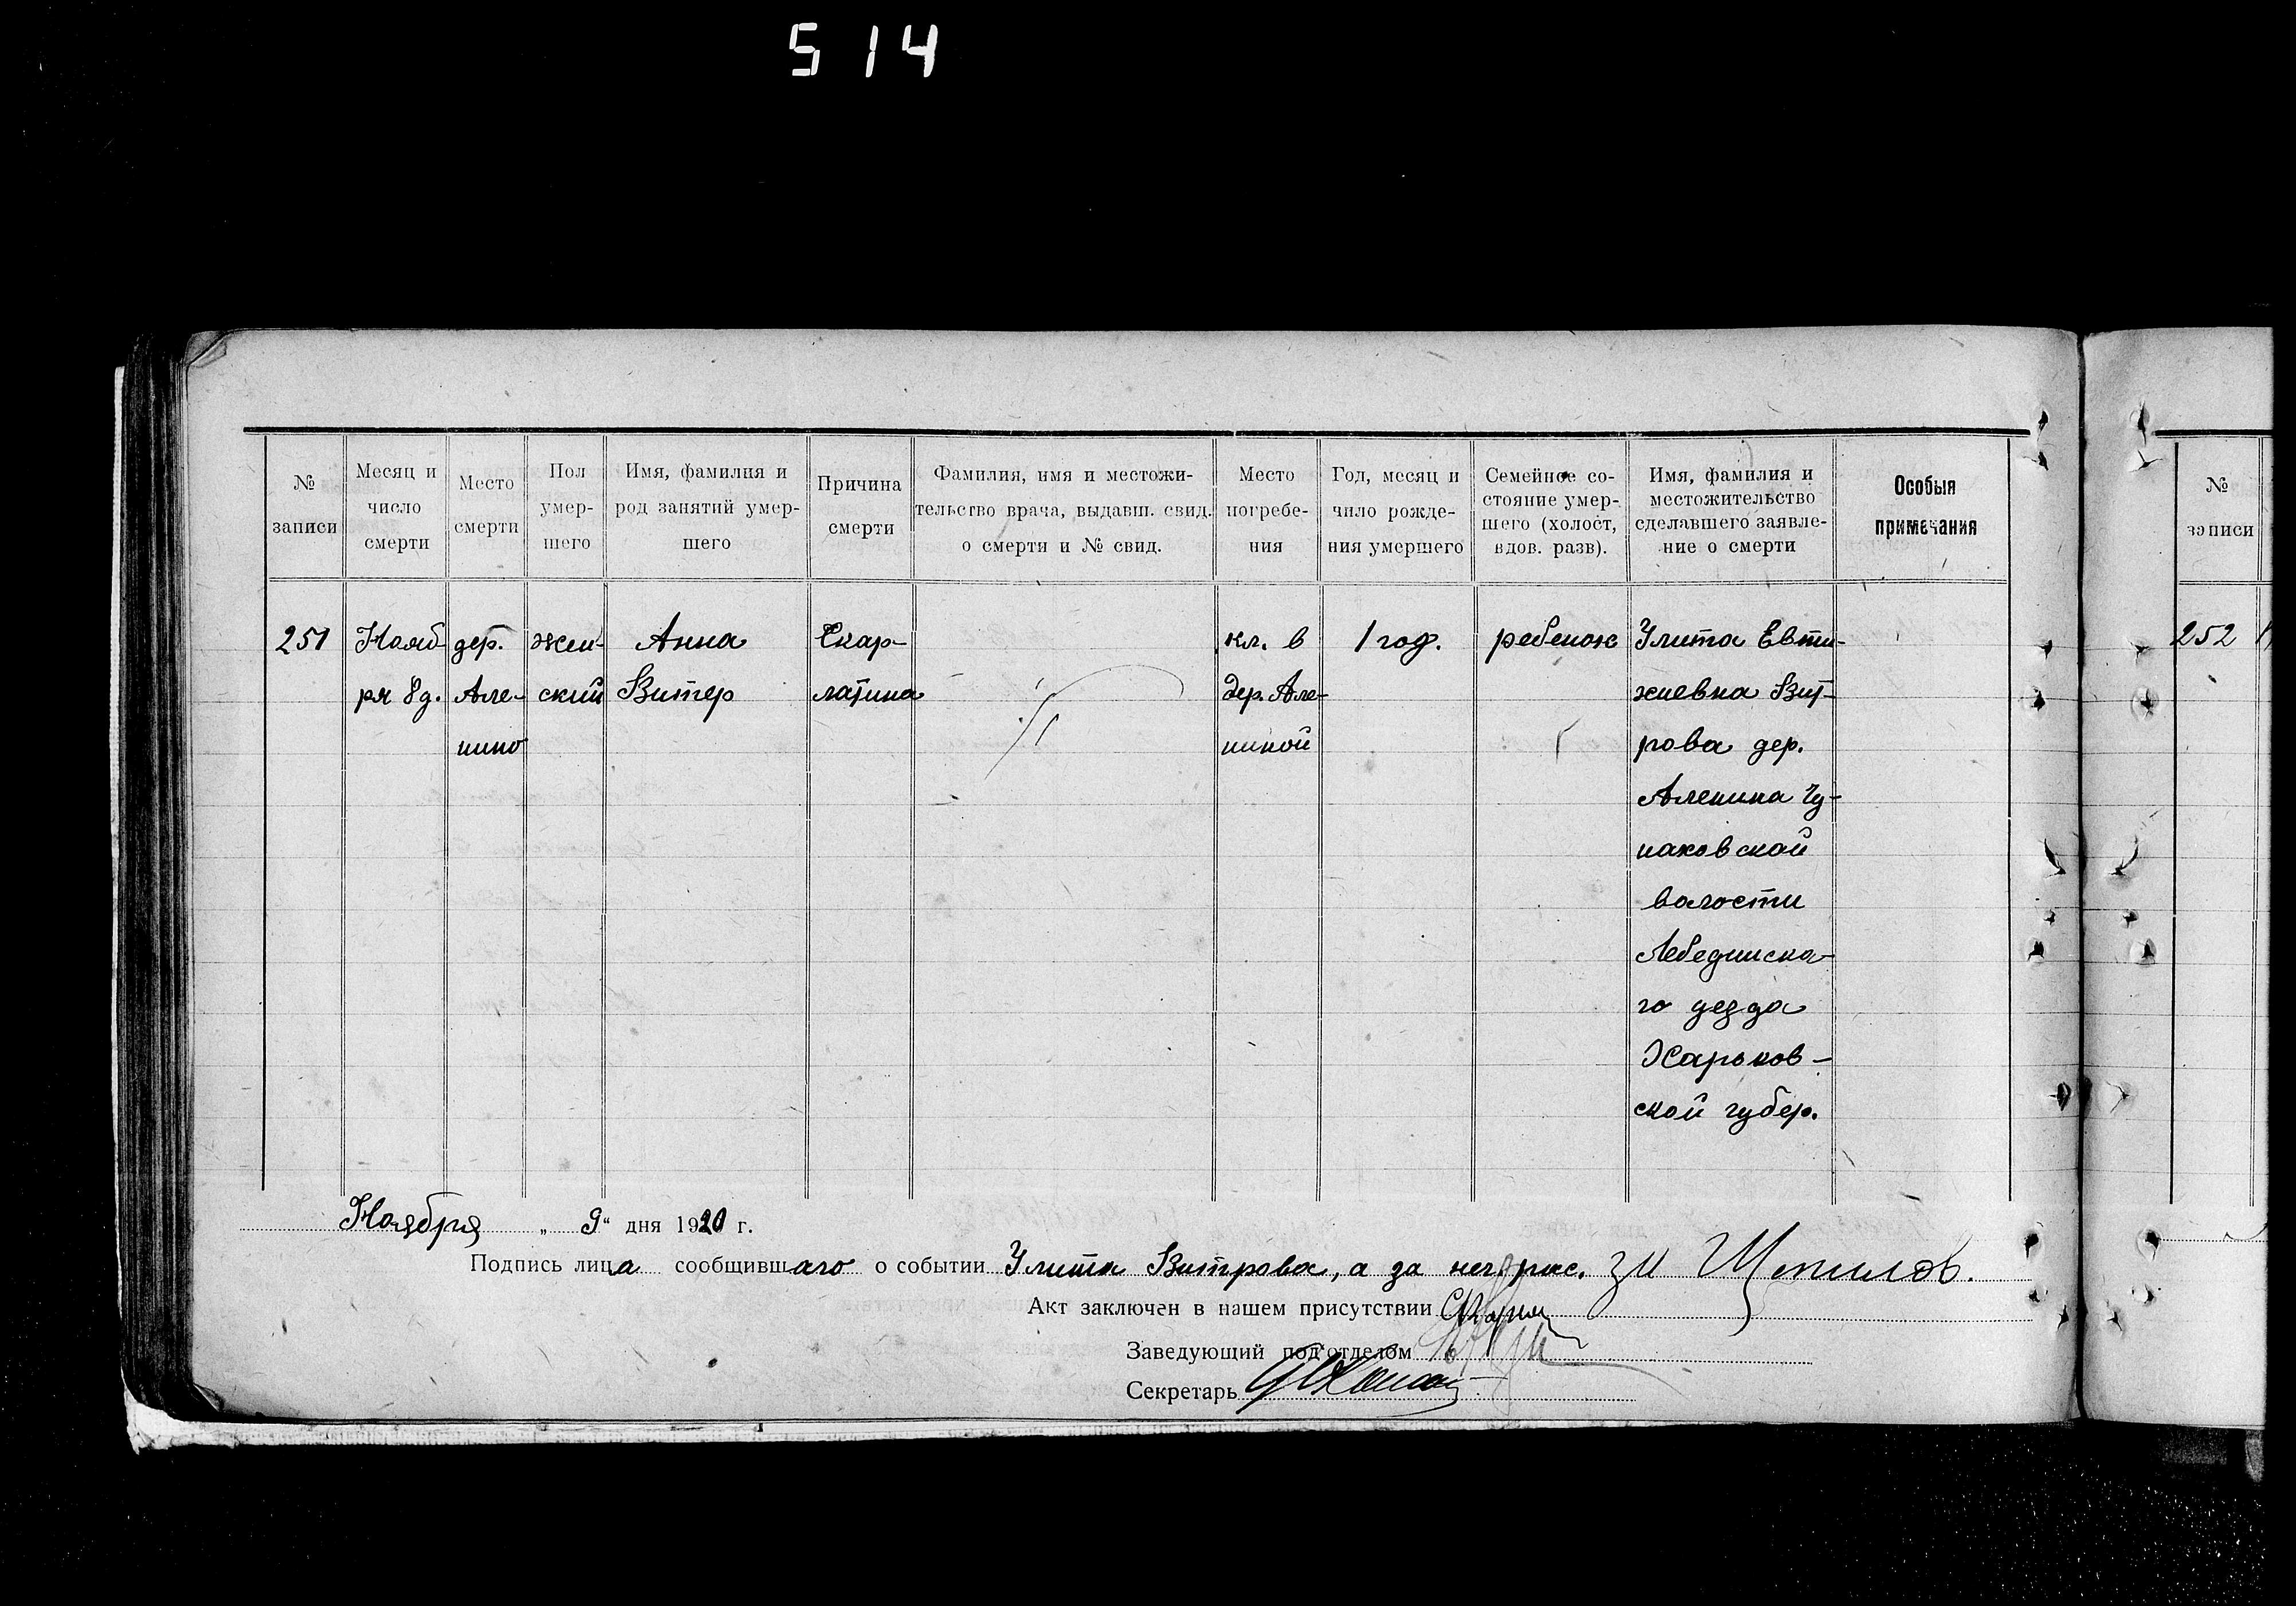 514
№ записи
Месяц и число смерти
Место смерти
Пол умер-
шего
Имя, фамилия и
род занятий умер-
шего
Причина смерти
Фамилия, имя и местожи-
тельство врача, выдавш. свид.
о смерти и № свид.
Место
погребе-
ния
Год, месяц и
чило рожде-
ния умершего
Семейное со-
стояние умер-
шего (холост,
вдов. разв).
Имя, фамилия и
местожительство
сделавшего заявле-
ние о смерти
Особыя
примечания
251
Нояб-
ря 8 д.
дер.
Але-
нино
жен-
ский
Анна
Витер
Скар-
латина
кл. в
дер. Але-
ниной
1 год.
ребенок
Улита Евти-
хиевна Вит-
рова дер.
Аленина Чу-
паховской
волости
Лебединска-
го уезда
Харьков-
ской губер.
Ноября „ 9 “ дня 1920 г.
Подпись лица сообщившаго о событии Улита Витрова, а за негр. рас.
Акт заключен в нашем присутствии
Заведующий под'отделом
Секретарь
№
записи
252